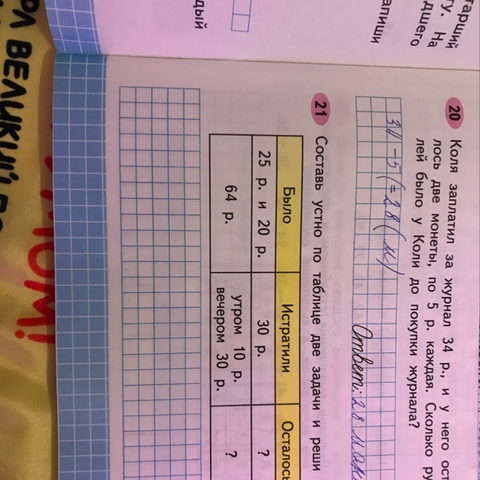 тарший
ту. На
дшего
апиши
дый
20 Коля заплатил за журнал 34 р., и у него ост
лось две монеты, по 5 р. каждая. Сколько ру
лей было у Коли до покупки журнала?
28 (м)
Ответ: 28
21 Составь устно по таблице две задачи и реши
Было Истратили Осталось
25 р. и 20 р. 30 р. ?
64 р. утром 10 р. вечером 30 р. ?
ВЕЛИКИЙ